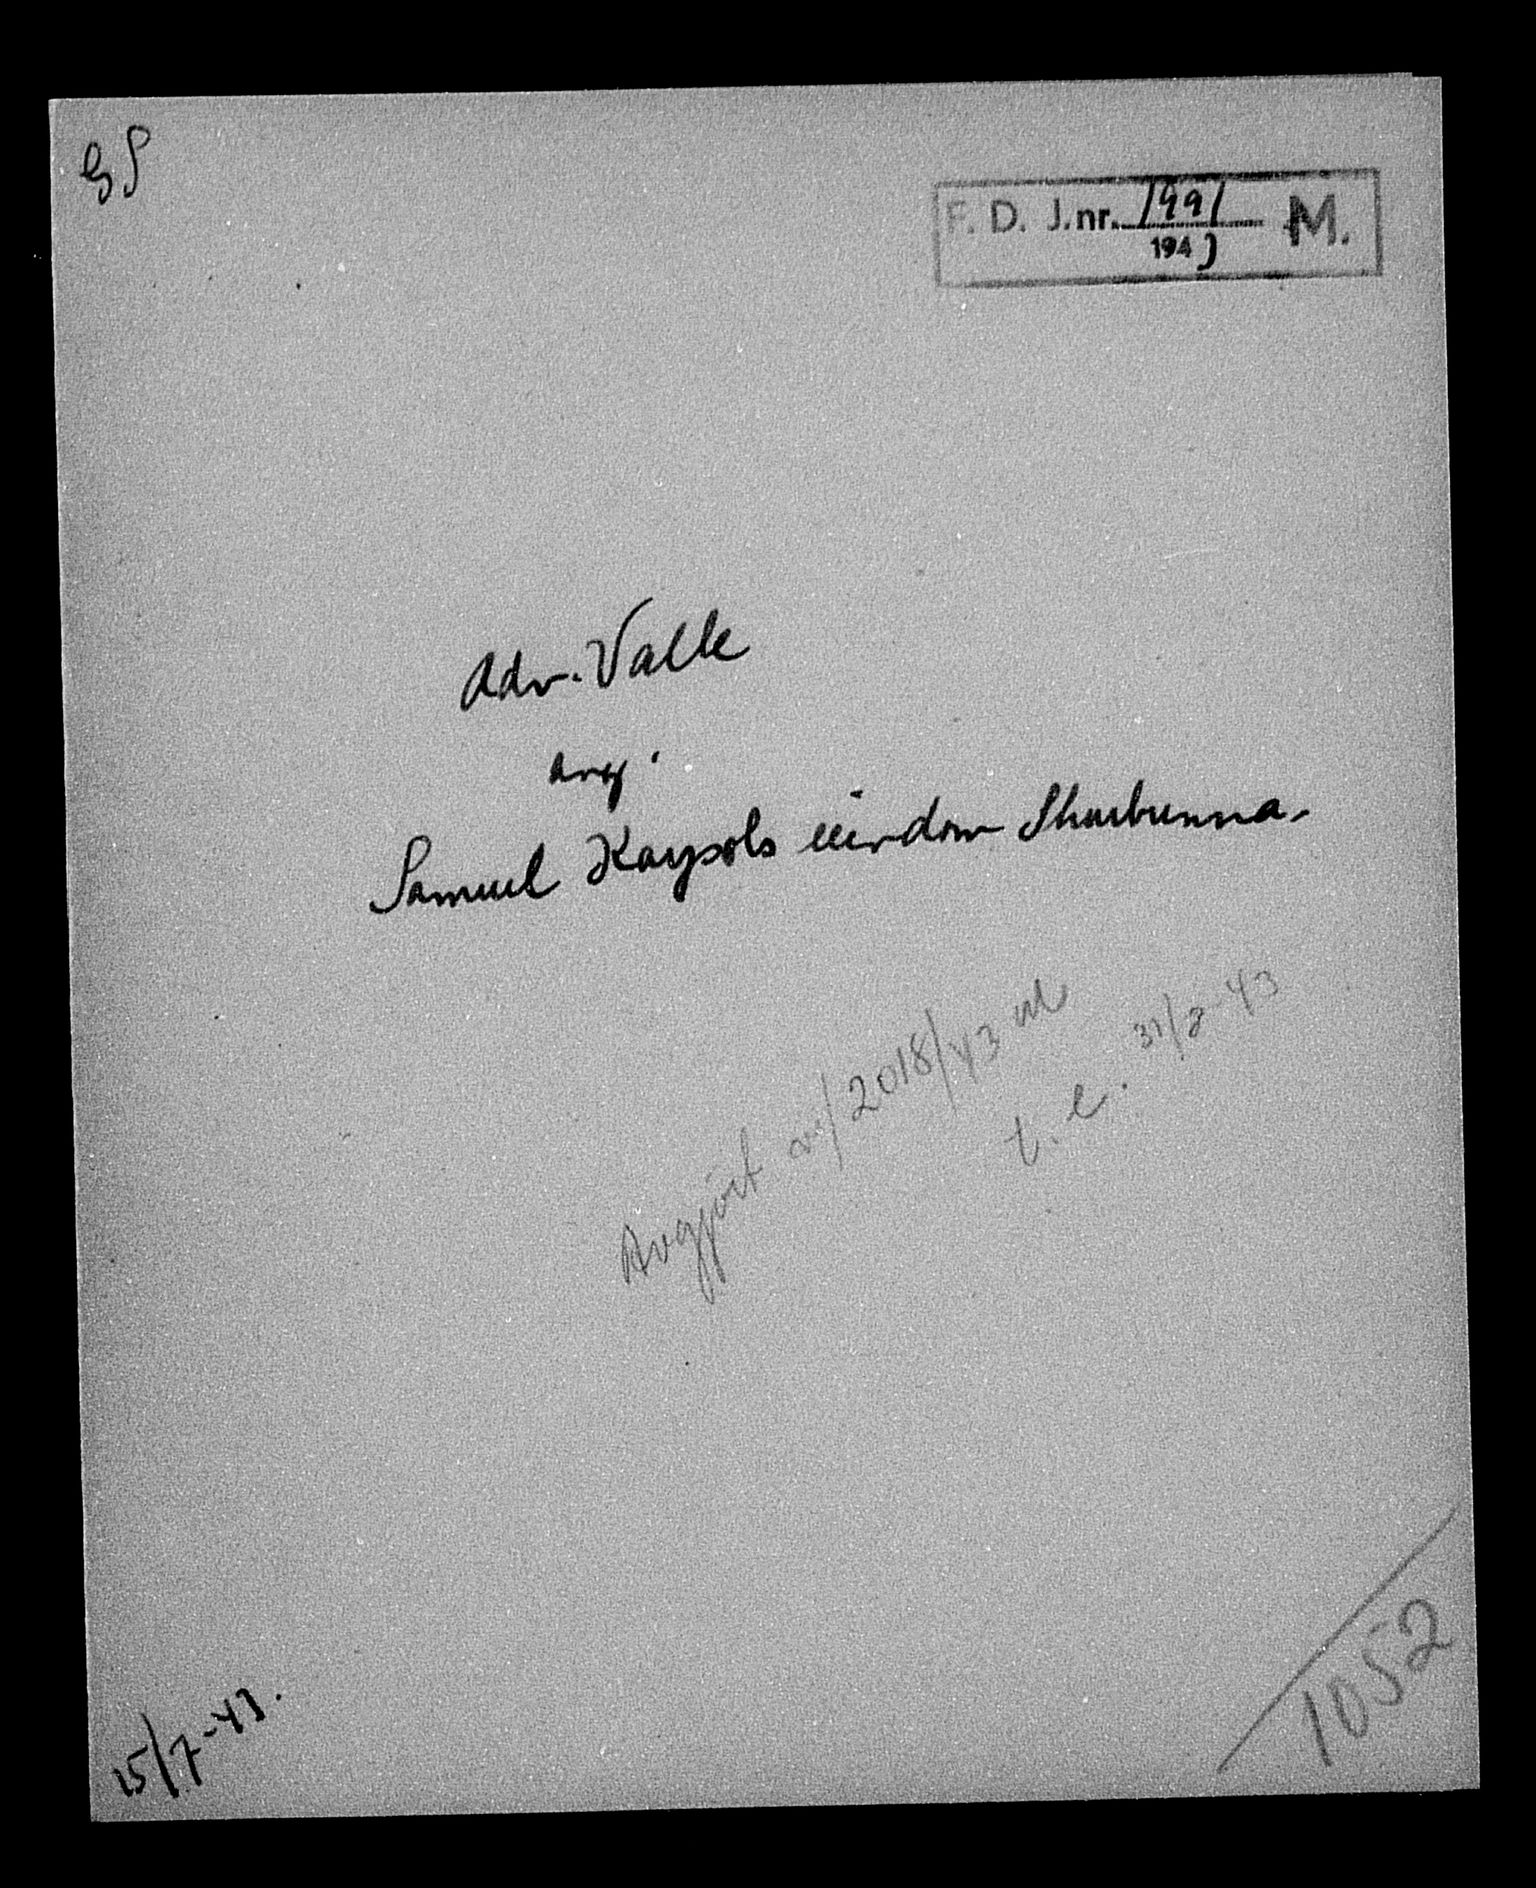 GS
F. D. J.nr. 1991 M.
1943
Adv. Valle
ang.
Samuel Kaysols eiendom Skarbunna.
Avgjort av/ 2018/43
t. e. 31/8-43
15/7-43.
1052